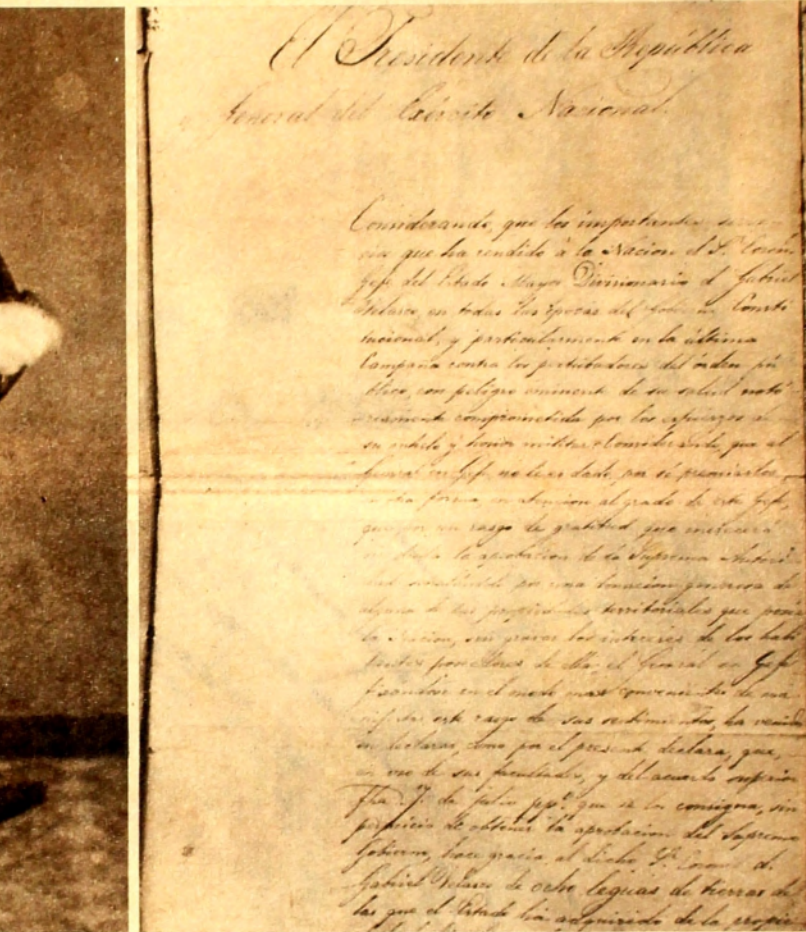 El Presidente de la República
General del Exército Nacional.
Considerando, que los importantes
que ha rendido à la Nacion el S.
Gefe del Estado Mayor Divisionario d. Gabriel
Velasco, en todas las épocas del Gobierno Consti
tucional, y particularmente en la última
Campaña contra los perturbadores del órden pú
blico, con peligro eminente de su salud
comprometida por los esfuerzos de
su anhelo y honor militar. Considerando, que al
General en Gefe, no le es dado, por sí premiarlos,
otra forma, en atencion al grado de este Gefe,
que por un rasgo de gratitud que merecerá
la aprobacion de la Suprema
por una generosa de
alguna de las propiedades territoriales que posee
la Nacion, sin gravar los intereses de los habi
tantes de ella, el General en Gefe
en el modo mas conveniente de ma
este rasgo de sus sentimientos, ha venido
en declarar, como por el presente declara, que,
en uso de sus facultades, y del acuerdo superior
fha. 7. de Julio pp.º que se le consigna, sin
perjuicio de obtener la aprobacion del Supremo
Gobierno, hace gracia al dicho S. Coronel d.
Gabriel Velasco de ocho leguas de tierras de
las que el Estado ha adquirido de la propie